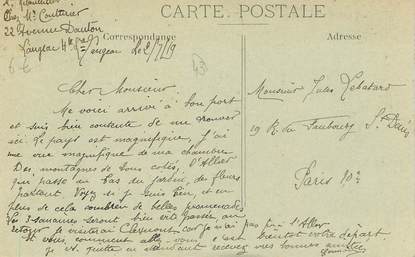 Chez Mr Couturier
CARTE POSTALE
22 Avenue Danton
Correspondance
Adresse
Langeac Hte
Langeac Le 2/7/19
6 E
43
Cher Monsieur
Me voici arrivé à bon port
et suis bien contente de me trouver
ici. Le pays est magnifique, j'ai
une vue magnifique de ma chambre
Des montagnes de tous cotés, l'Allier
qui passe au bas du jardin, des fleurs
partout. Voyez si je suis bien, et en
plus de cela combien de belles promenades
Les 3 semaines seront bien vite passées, au
retour je visiterai Clermont car je n'ai pas pris l'Allier
Et vous, comment allez-vous c'est bientot votre départ
Je quitte en recevez mes bonnes amitiés
Monsieur Jules
19 R. du Faubourg St Denis
Paris 10e